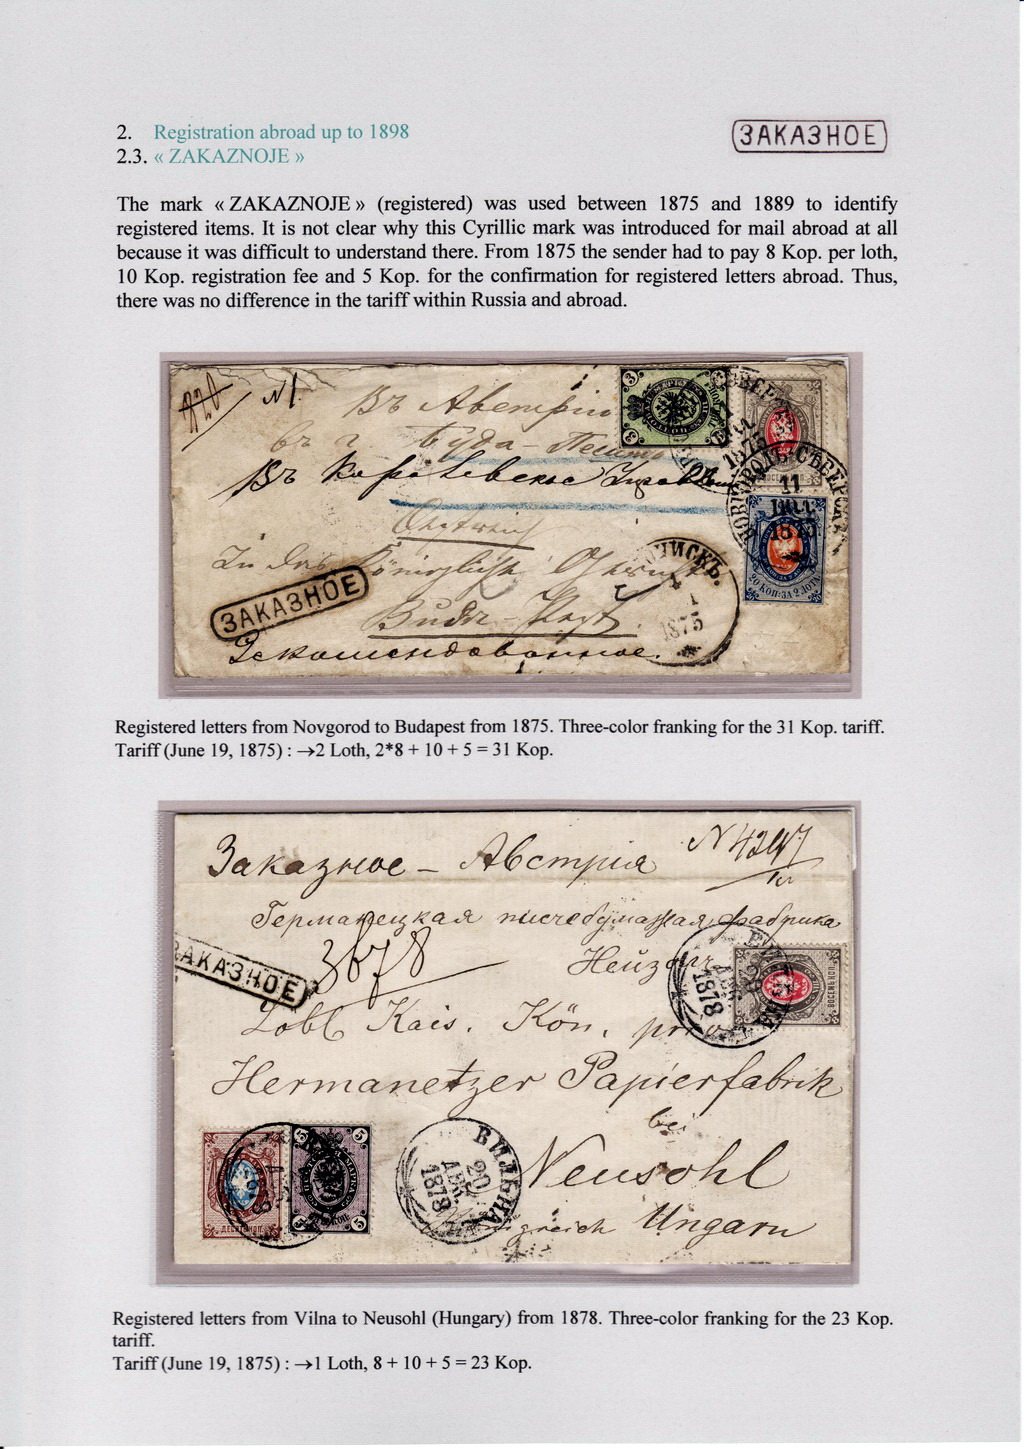 2. Registration abroad up to 1898
2.3. « ZAKAZNOJE »
ЗАКАЗНОЕ
The mark « ZAKAZNOJE » (registered) was used between 1875 and 1889 to identify
registered items. It is not clear why this Cyrillic mark was introduced for mail abroad at all
because it was difficult to understand there. From 1875 the sender had to pay 8 Kop. per loth,
10 Kop. registration fee and 5 Kop. for the confirmation for registered letters abroad. Thus,
there was no difference in the tariff within Russia and abroad.
820
N1.
Въ Австрію
въ г. Буда-Пештъ
Въ Королевское
3
11
1875
20 КОП: ЗА 2 ЛОТА
In das Königlich
ЗАКАЗНОЕ
1
1875
Рекомендованное.
Registered letters from Novgorod to Budapest from 1875. Three-color franking for the 31 Kop. tariff.
Tariff (June 19, 1875) : →2 Loth, 2*8 + 10 + 5 = 31 Kop.
Заказное – Австрія
Германецкая писчебумажная фабрика
Нейзоль
ЗАКАЗНОЕ
3678
1878
ВОСЕМЬ КОП.
Löbl. Kais. Kön. priv.
Hermanetzer Papierfabrik
bei
5
ДЕСЯТЬ КОП.
ВИЛЬНА
20
АВГ.
1878
Neusohl
Königreich Ungarn
Registered letters from Vilna to Neusohl (Hungary) from 1878. Three-color franking for the 23 Kop.
tariff.
Tariff (June 19, 1875) : →1 Loth, 8 + 10 + 5 = 23 Kop.